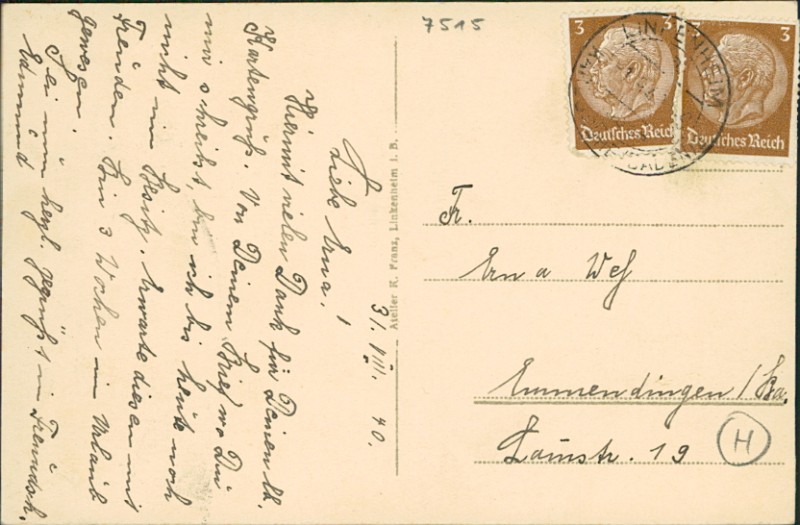 7515
3
3
Deutsches Reich
Deutsches Reich
LINKENHEIM
31. VIII. 40.
Liebe Erna!
Hiermit vielen Dank für Deinen lb.
Kartengruß. Von Deinem Brief wo Du
mir schreibst, bin ich bis heute noch
nicht im Besitz. Erwarte diesen mit
Freuden. Bin 3 Wochen in Urlaub
gewesen.
Sei nun herzl. gegrüßt in Freundsch.
Edmund
Atelier K. Franz, Linkenheim i. B.
Fr.
Erna
Emmendingen / Ba.
19
H